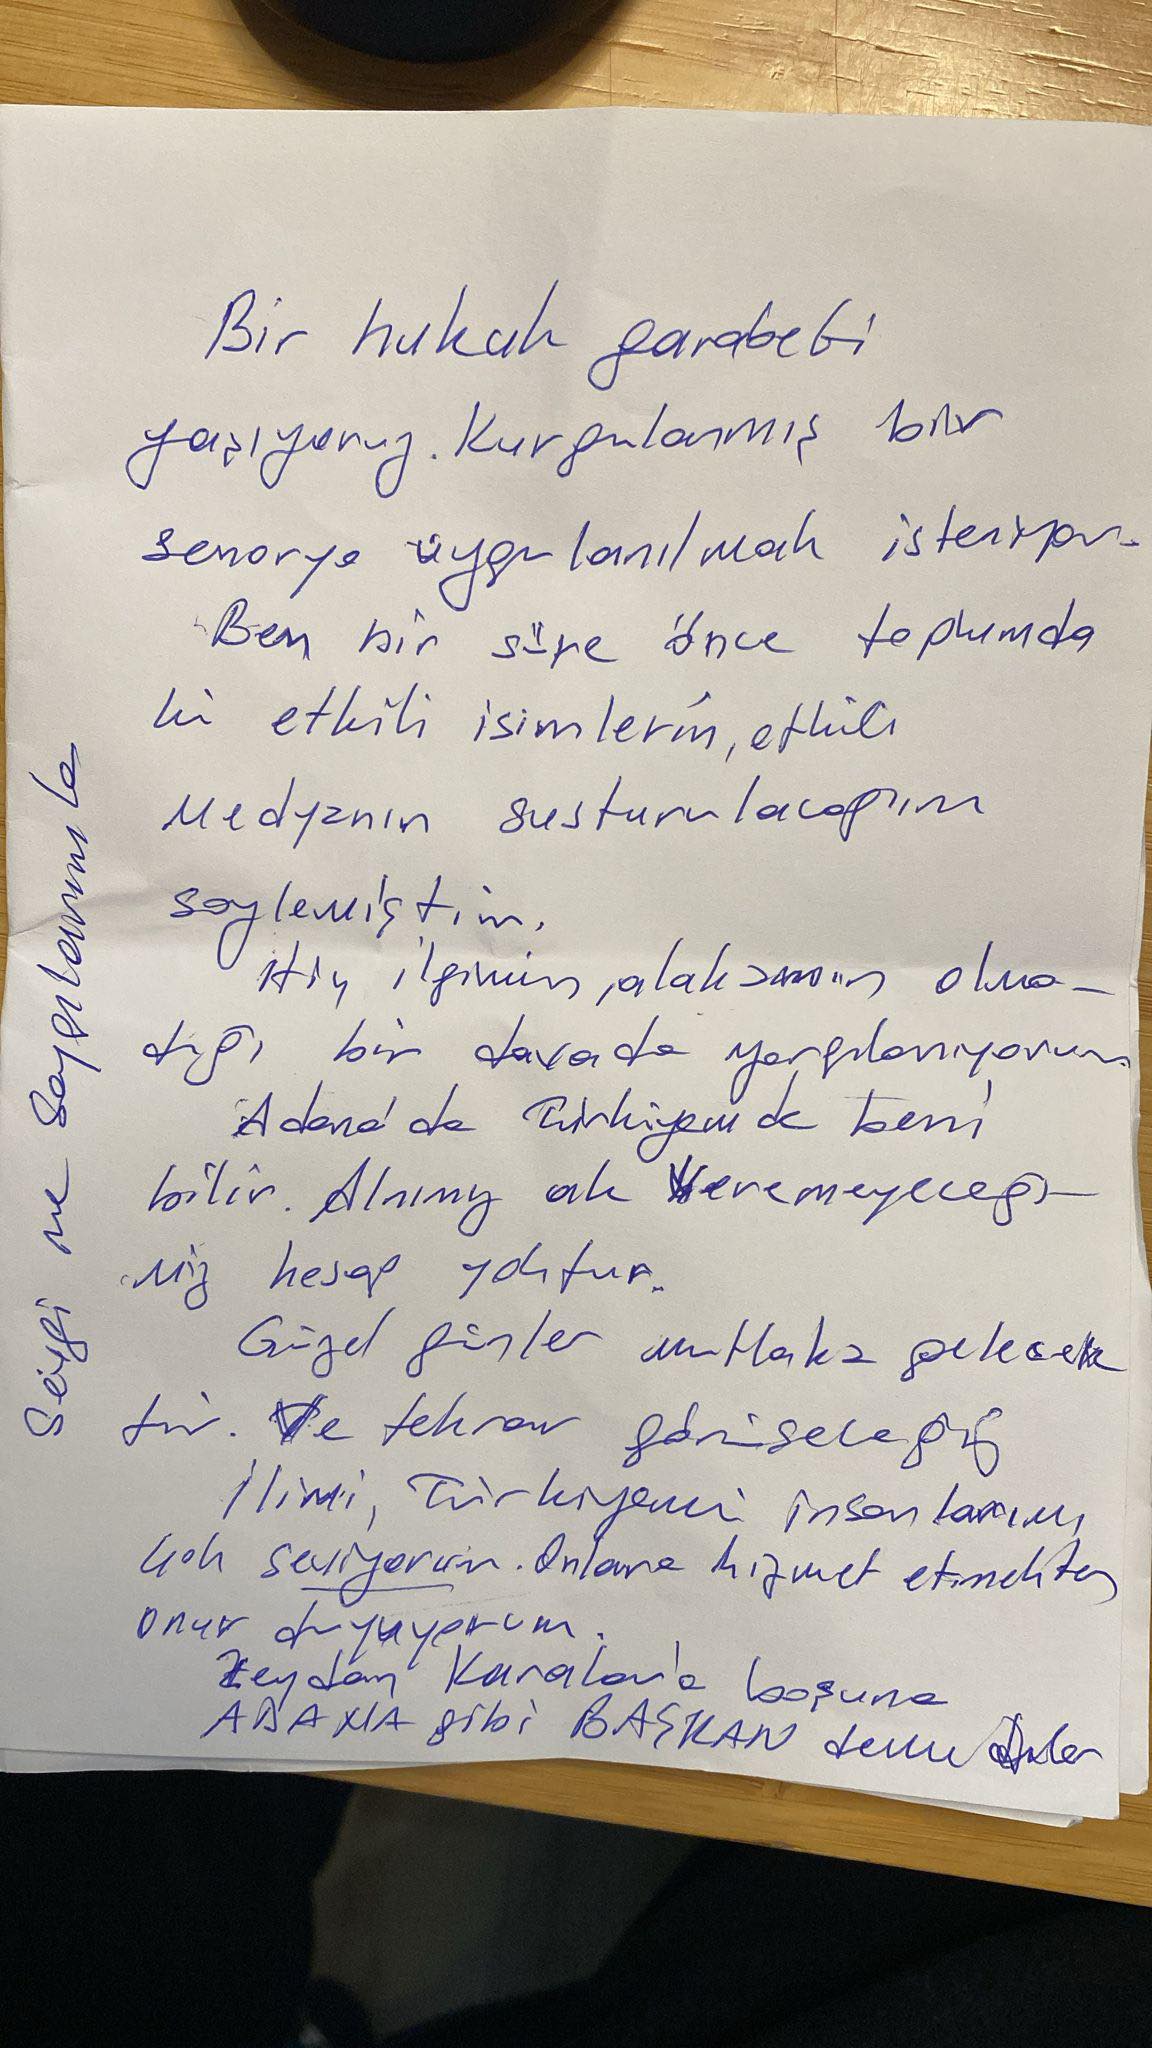 Bir hukuk garabeti
yaşıyoruz. Kurgulanmış bir
senaryo uygulanılmak isteniyor.
Ben bir süre önce toplumda
ki etkili isimlerin, etkili
Medyanın susturulacağını
söylemiştim.
Hiç ilgimin, alakamın olma-
dığı bir davada yargılanıyorum.
Adana'da Türkiyemde beni
bilir. Alnımız ak Veremeyeceği-
miz hesap yoktur.
Güzel günler mutlaka gelecek
tir. Ve tekrar görüşeceğiz
İlimi, Türkiyemi insanlarımı
çok seviyorum. Onlara hizmet etmekten
onur duyuyorum.
Zeydan Karalar'a boşuna
ADANA gibi BAŞKAN demediler
Sevgi ve Saygılarımla